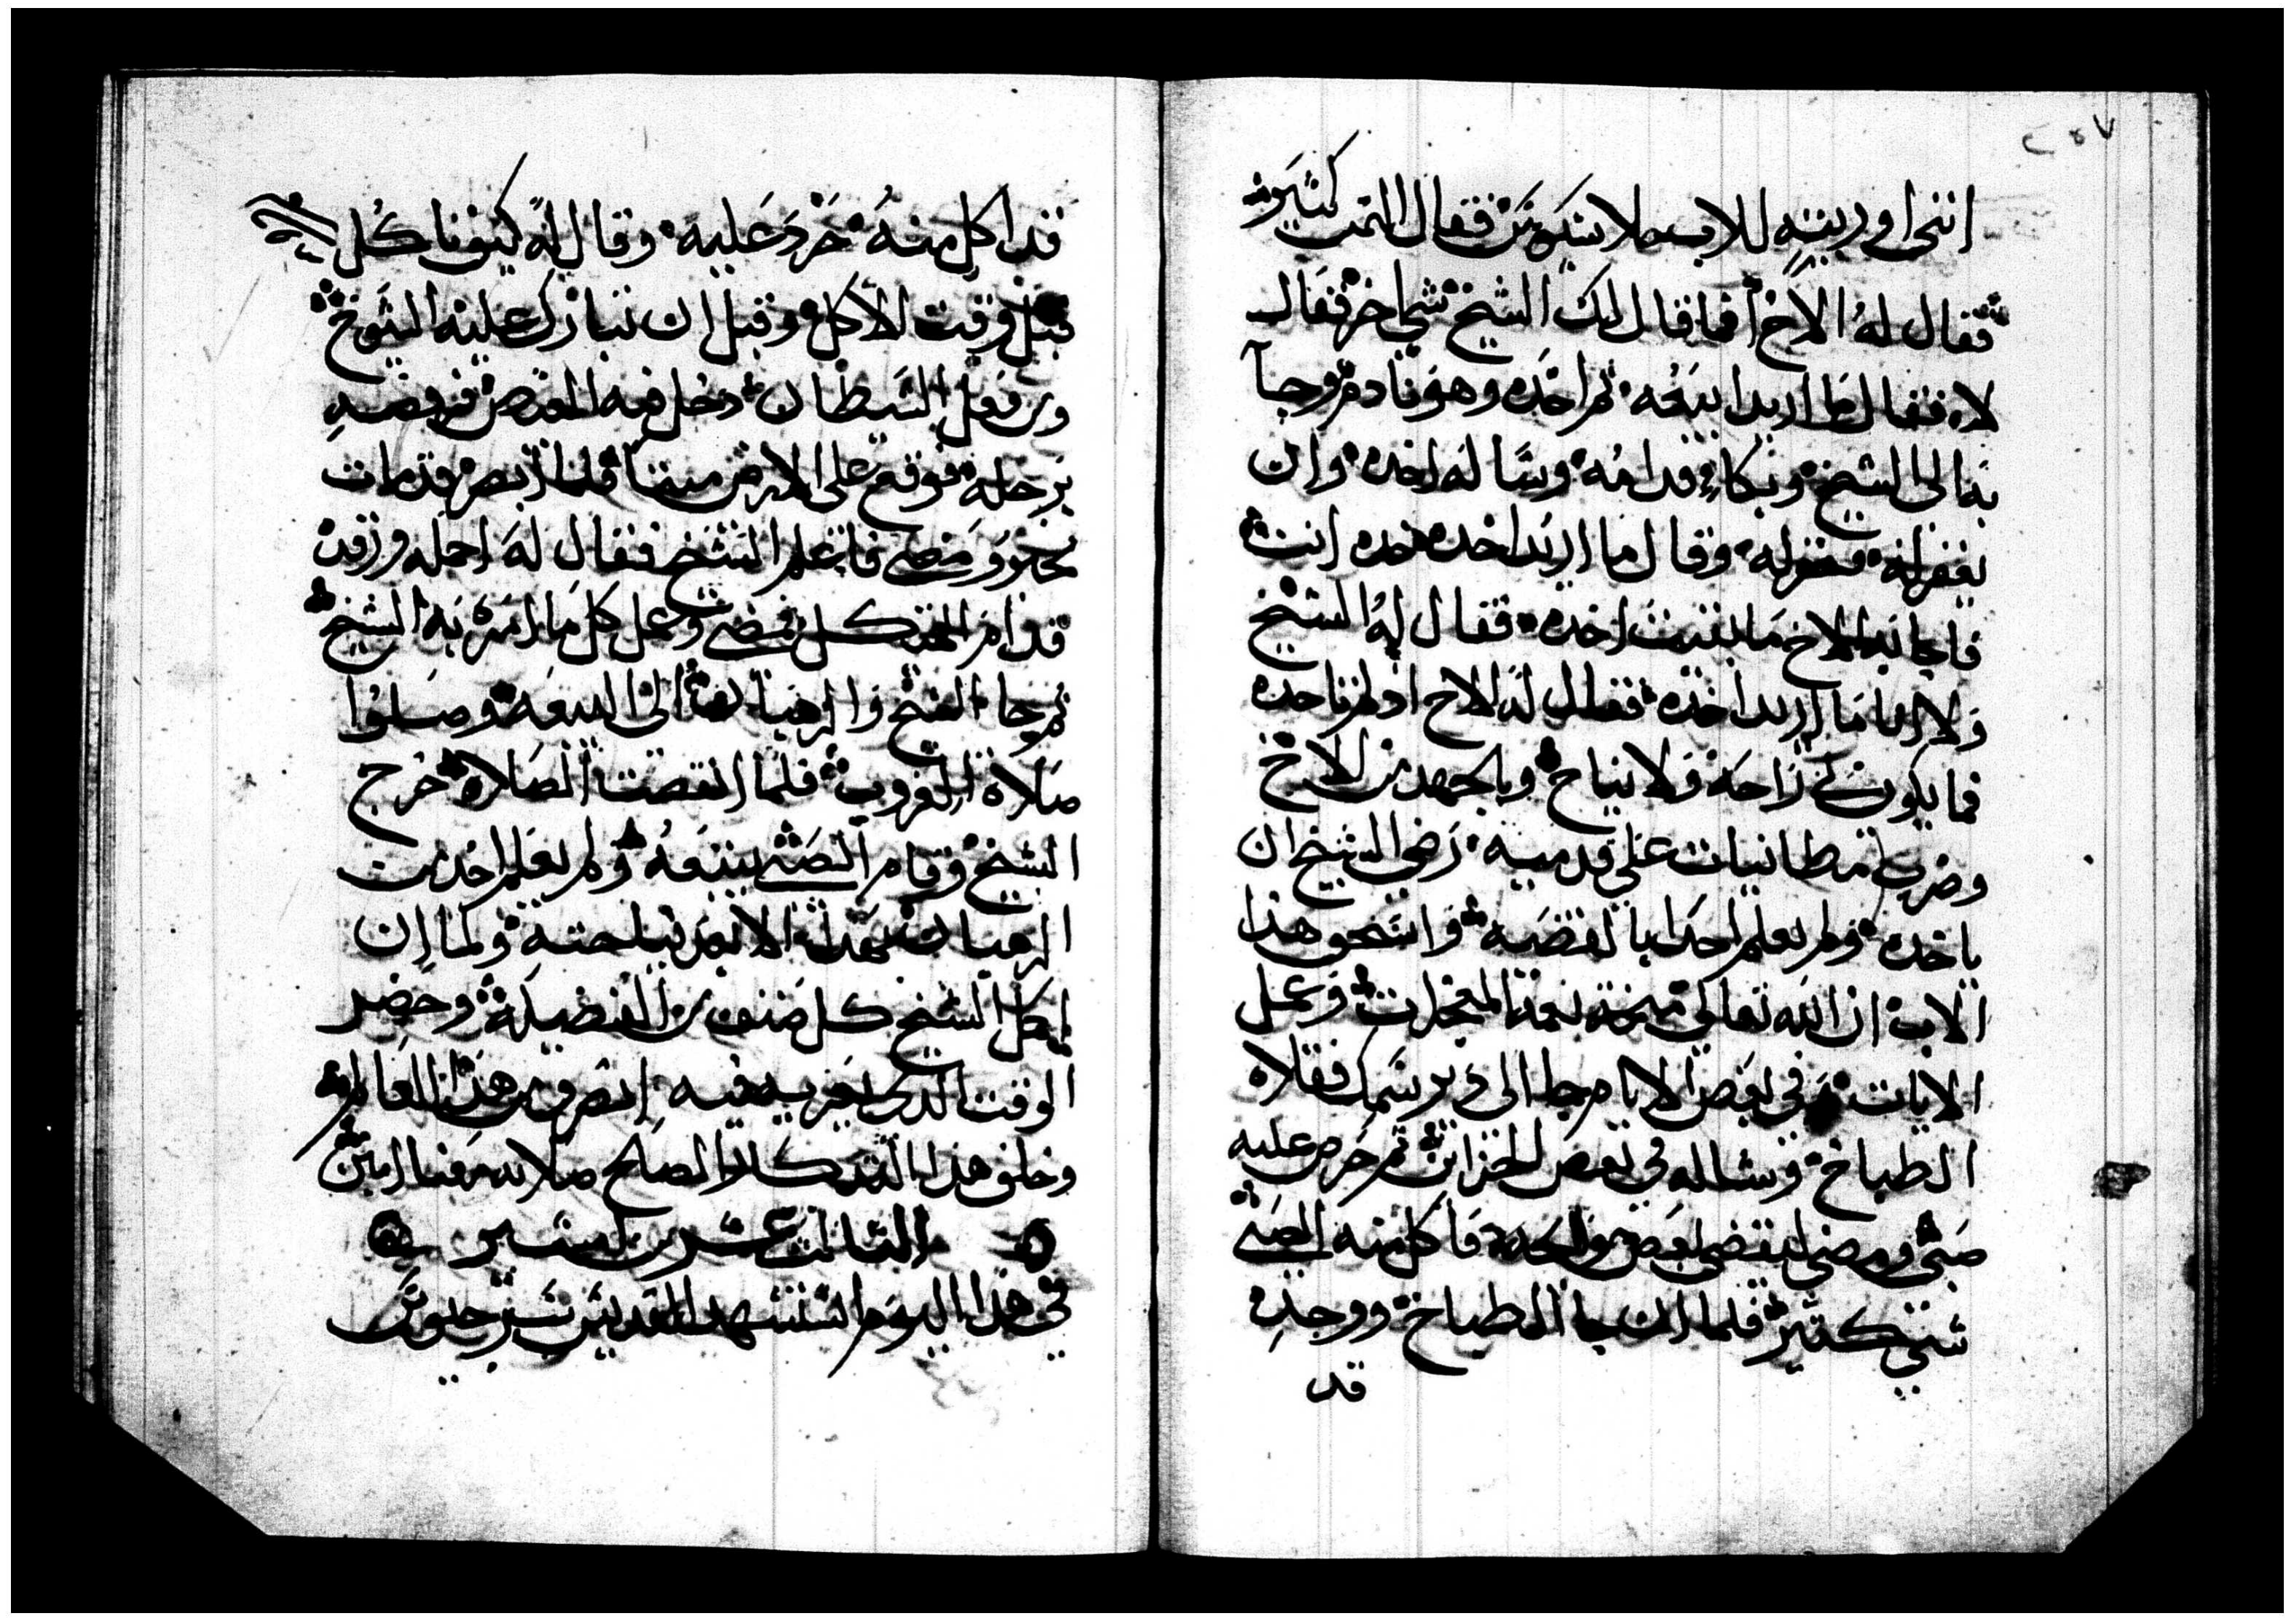 ٢٥٧
انني اوريته للاب فلان بكم ثمن فقال الثمن كثير
فقال له الاخ افما قال لك الشيخ شي اخر فقال
لا فقال ما اريد ابيعه ثم اخده وهو نادم وجا
به الى الشيخ وبكا قدامه وساله اخده وان
يغفر له فغفر له وقال ما اريد اخده خده انت
فاجابه الاخ ما بقيت اخده فقال له الشيخ
ولا انا ما اريد اخده فقال له الاخ اذ لم تاخده
فما يكون لي راحة ولا نياح وبالجهد من الاخ
وضرب مطانيات على قدميه رضي الشيخ ان
ياخده ولم يعلم احدا بالقضية واستحق هذا
الاب ان الله تعالى منحه نعمة المعجزات وعمل
الايات وفي بعض الايام جا الى دير سمك فقلاه
الطباخ وشاله في بعض الخزاين ثم حرص عليه
صبي ومضى ليقضي بعض حوايجه فاكل منه الصبي
شي كتير فلما ان جا الطباخ ووجده
قد
قد اكل منه حرد عليه وقال له كيف تاكل
قبل وقت الاكل وقبل ان تبارك عليه الشيوخ
ومن فعل الشيطان دخل فيه الغضب فرفصه
برجله فوقع على الارض ميتا فلما ابصره قد مات
تحير ومضى فاعلم الشيخ فقال له احمله ورقده
قدام الهيكل فمضى وعمل كل ما امره به الشيخ
ثم جا الشيخ والرهبان الى البيعة وصلوا
صلاة الغروب فلما انقضت الصلاه خرج
الشيخ وقام الصبي يتبعه ولم يعلم احد من
الرهبان بهدا الا بعد نياحته ولما ان
اكمل الشيخ كل صنف من الفضيلة وحضر
الوقت الدي يعزيه فيه انصرف من هذا العالم
وخلف هذا التدكار الصالح صلاته معنا امين
الثالث عشر من امشير
في هذا اليوم استشهد القديس سرجيوس